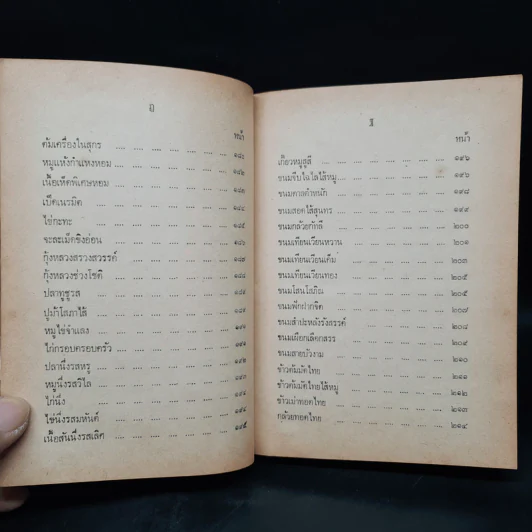 ฎ
หน้า
ต้มเครื่องในสุกร .... .... .... .... .... .... .... ๑๘๖
หมูแห้งกำแหงหอม .... .... .... .... .... ....
เนื้อเค็มพิเศษหอม .... .... .... .... .... ....
เป็ดเนรมิต .... .... .... .... .... .... ....
ไข่กะทะ .... .... .... .... .... .... ....
จะละเม็ดขิงอ่อน .... .... .... .... .... ....
กุ้งหลวงสรวงสวรรค์ .... .... .... .... .... ....
กุ้งหลวงช่วงโชติ .... .... .... .... .... ....
ปลาทูชูรส .... .... .... .... .... .... ....
ปูม้าโสภาไส้ .... .... .... .... .... ....
หมูไข่จำแลง .... .... .... .... .... ....
ไก่กรอบครอบครัว .... .... .... .... .... ....
ปลานึ่งรสหรู .... .... .... .... .... ....
หมูนึ่งรสวิไล .... .... .... .... .... ....
ไก่นึ่ง .... .... .... .... .... .... ....
ไข่นึ่งรสมหันต์ .... .... .... .... .... ....
เนื้อสันนึ่งรสเลิศ .... .... .... .... .... .... ๑๙๕
หน้า
เกี้ยวหมูสูสี .... .... .... .... .... .... ๑๙๖
ขนมจีบไนไลไส้หมู .... .... .... .... .... ๑๙๖
ขนมตาลตำหนัก .... .... .... .... .... ๑๙๘
ขนมสอดไส้สุนทร .... .... .... .... .... ๑๙๙
ขนมกล้วยกิลี .... .... .... .... .... ๒๐๐
ขนมเทียนเวียนหวาน .... .... .... .... .... ๒๐๑
ขนมเทียนเวียนเค็ม .... .... .... .... .... ๒๐๓
ขนมเทียนเวียนทอง .... .... .... .... .... ๒๐๕
ขนมโสนโสภิณ .... .... .... .... .... ๒๐๕
ขนมฟักฝากจิต .... .... .... .... .... ๒๐๗
ขนมสำปะหลังรังสรรค์ .... .... .... .... ๒๐๘
ขนมเผือกเลือกสรร .... .... .... .... .... ๒๐๙
ขนมสายบัวงาม .... .... .... .... .... ๒๑๐
ข้าวต้มมัดไทย .... .... .... .... .... ๒๑๑
ข้าวต้มมัดไทยไส้หมู .... .... .... .... .... ๒๑๒
ข้าวเม่าทอดไทย .... .... .... .... .... ๒๑๓
กล้วยทอดไทย .... .... .... .... .... ๒๑๔